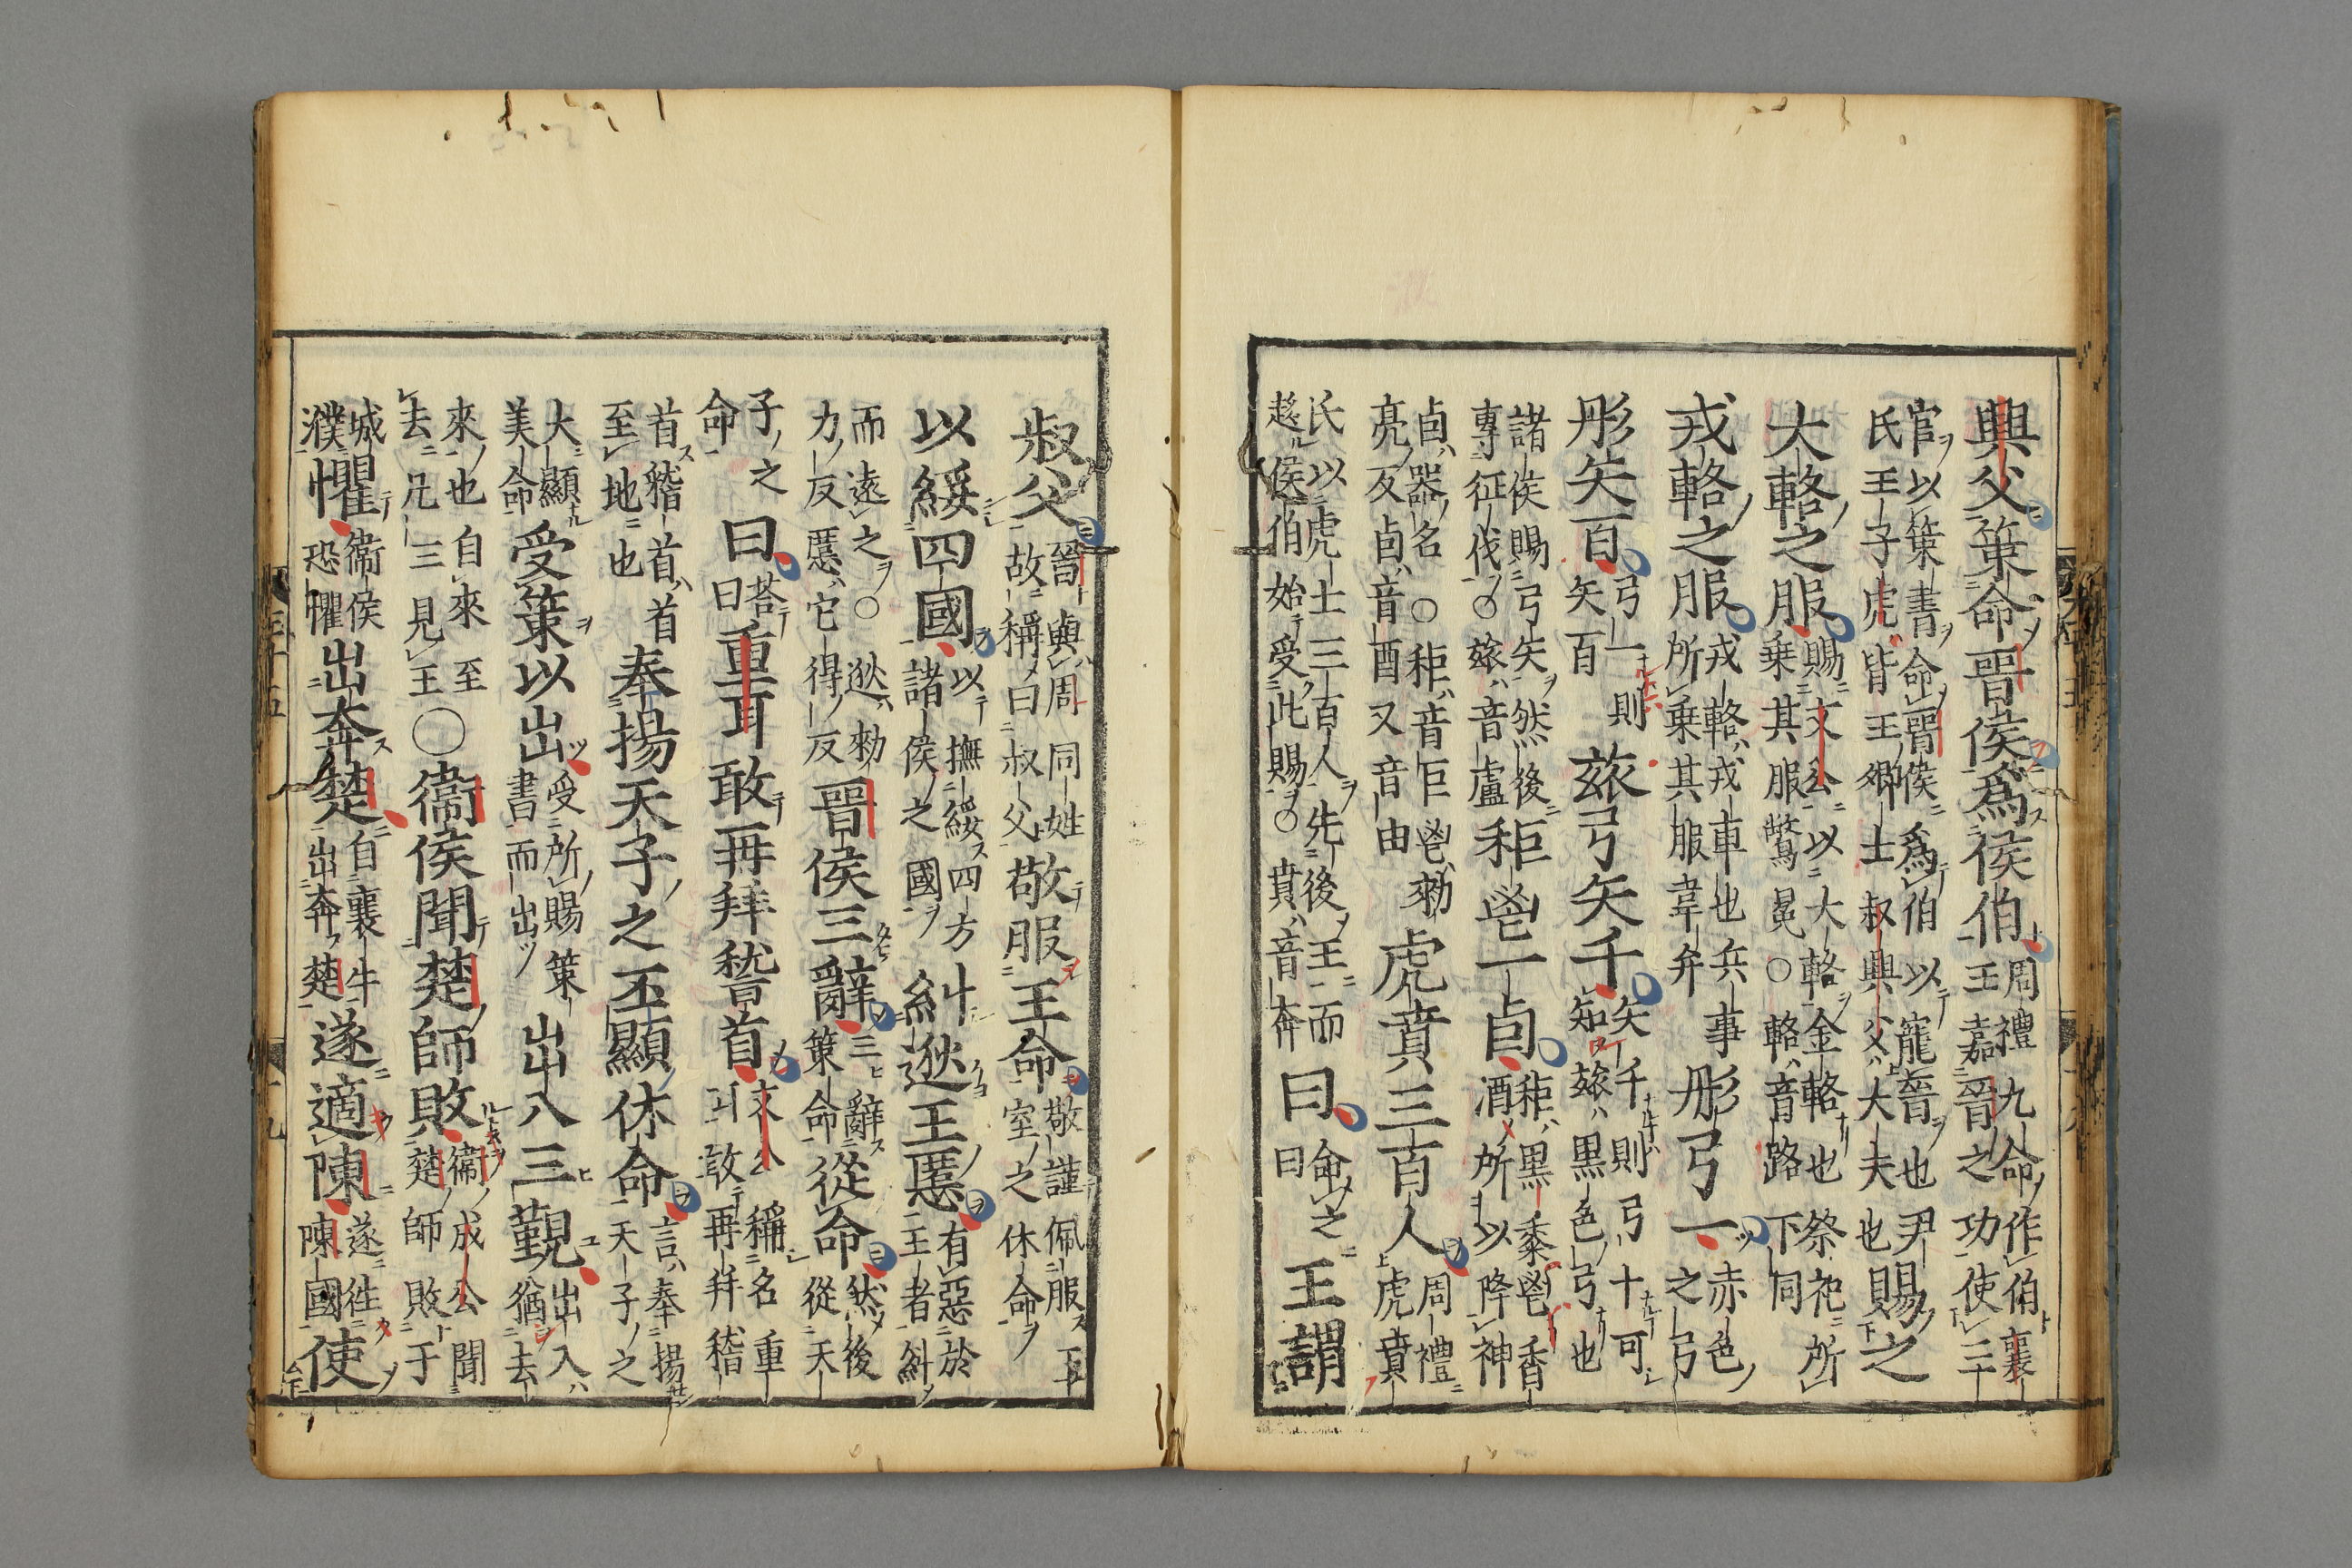 興父策命晉侯爲侯伯周禮九命作伯襄王嘉晉之功使三
官以策書命晉侯爲伯以寵晉也尹氏王子虎皆王卿士叔興父大夫也賜之
大輅之服賜文公以大輅金輅也祭祀所乗其服鷩冕〇輅音路下同
戎輅之服戎輅戎車也兵事所乗其服韋弁彤弓一赤色之弓
彤矢百弓一則矢百玈弓矢千矢千則弓十可知玈黒色弓也
諸侯賜弓矢然後專征伐〇玈音盧秬鬯一卣秬黒黍鬯香酒所以降神
卣器名〇秬音巨鬯勑亮反卣音酉又音由虎賁三百人周禮虎賁
氏以虎士三百人先後王而趍侯伯始受此賜〇賁音奔曰命之曰王謂
叔父晉與周同姓故稱曰叔父敬服王命敬謹佩服王室之休命
以綏四國以撫綏四方諸侯之國糾逖王慝有惡於王者糾
而遠之〇逖勑力反慝它得反晉侯三辭三辭策命從命然後從天
子之命曰荅曰重耳敢再拜稽首文公稱名重耳敢再拜稽
首稽首首至地也奉揚天子之丕顯休命言奉揚天子之
大顯美命受策以出受所賜策書而出出入三覲出入猶去
來也自來至去凡三見王〇衞侯聞楚師敗衞成公聞楚師敗于
城濮懼衞侯恐懼出奔楚自襄牛出奔楚遂適陳遂徃陳國使